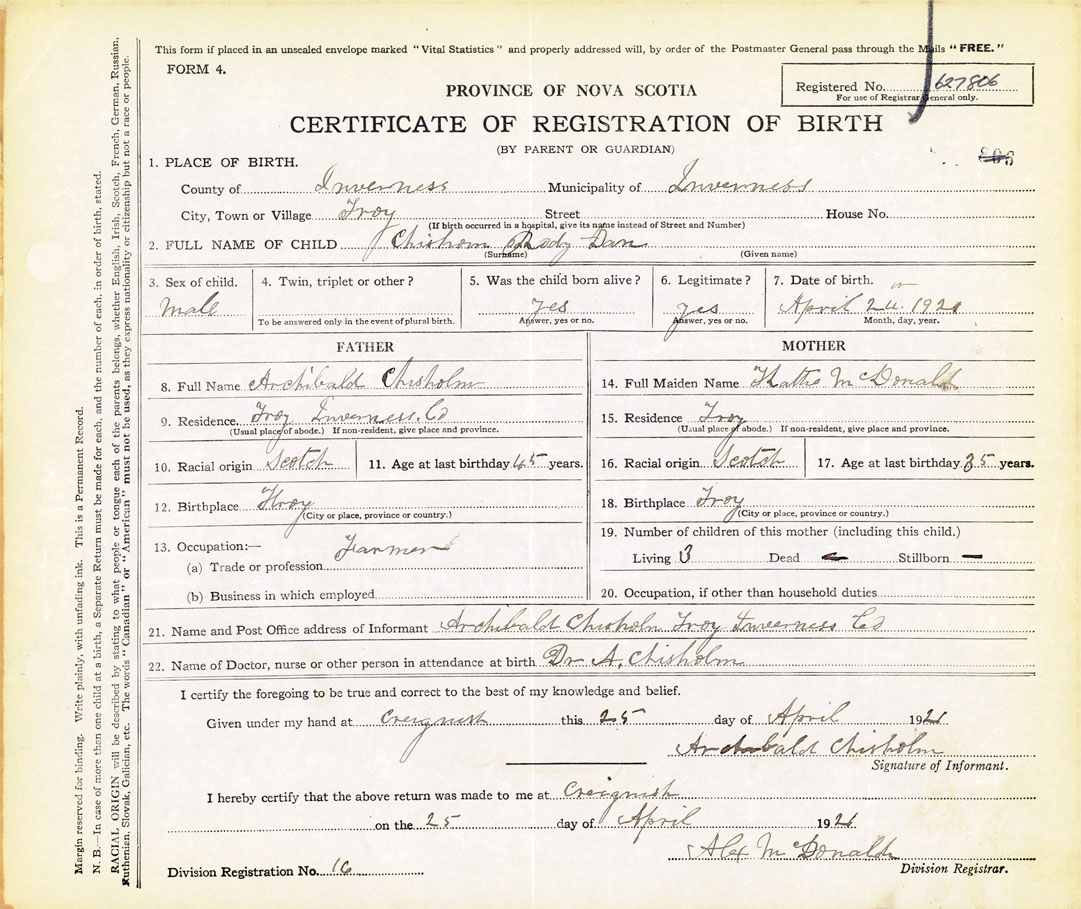 This form if placed in an unsealed envelope marked "Vital Statistics" and properly addressed will, by order of the Postmaster General pass through the Mails "FREE."
FORM 4.
Registered No. 627806
For use of Registrar General only.
PROVINCE OF NOVA SCOTIA
CERTIFICATE OF REGISTRATION OF BIRTH
(BY PARENT OR GUARDIAN)
1. PLACE OF BIRTH.
County of Inverness Municipality of Inverness
City, Town or Village Troy Street House No.
(If birth occurred in a hospital, give its name instead of Street and Number)
2. FULL NAME OF CHILD Chisholm Rody Dan
(Surname) (Given name)
3. Sex of child. 4. Twin, triplet or other? 5. Was the child born alive? 6. Legitimate? 7. Date of birth.
Male yes yes April 24. 1921
To be answered only in the event of plural birth. Answer, yes or no. Answer, yes or no. Month, day, year.
FATHER MOTHER
8. Full Name Archibald Chisholm 14. Full Maiden Name Kathe McDonald
9. Residence. Troy Inverness. Co 15. Residence Troy
(Usual place of abode.) If non-resident, give place and province. (Usual place of abode.) If non-resident, give place and province.
10. Racial origin Scotch 11. Age at last birthday 45 years. 16. Racial origin Scotch 17. Age at last birthday 35 years.
12. Birthplace Troy 18. Birthplace Troy
(City or place, province or country.) (City or place, province or country.)
19. Number of children of this mother (including this child.)
13. Occupation:— Farmer
Living 3 Dead – Stillborn –
(a) Trade or profession
(b) Business in which employed 20. Occupation, if other than household duties
21. Name and Post Office address of Informant Archibald Chisholm Troy Inverness Co
22. Name of Doctor, nurse or other person in attendance at birth Dr A. Chisholm
I certify the foregoing to be true and correct to the best of my knowledge and belief.
Given under my hand at Creignish this 25 day of April 1921
Archibald Chisholm
Signature of Informant.
I hereby certify that the above return was made to me at Creignish
on the 25 day of April 1921
Alex McDonald
Division Registration No. 16 Division Registrar.
Margin reserved for binding. Write plainly, with unfading ink. This is a Permanent Record.
N. B.—In case of more than one child at a birth, a Separate Return must be made for each, and the number of each, in order of birth, stated.
RACIAL ORIGIN will be described by stating to what people or tongue each of the parents belongs, whether English, Irish, Scotch, French, German, Russian,
Ruthenian, Slovak, Galician, etc. The words "Canadian" or "American" must not be used, as they express nationality or citizenship but not a race or people.